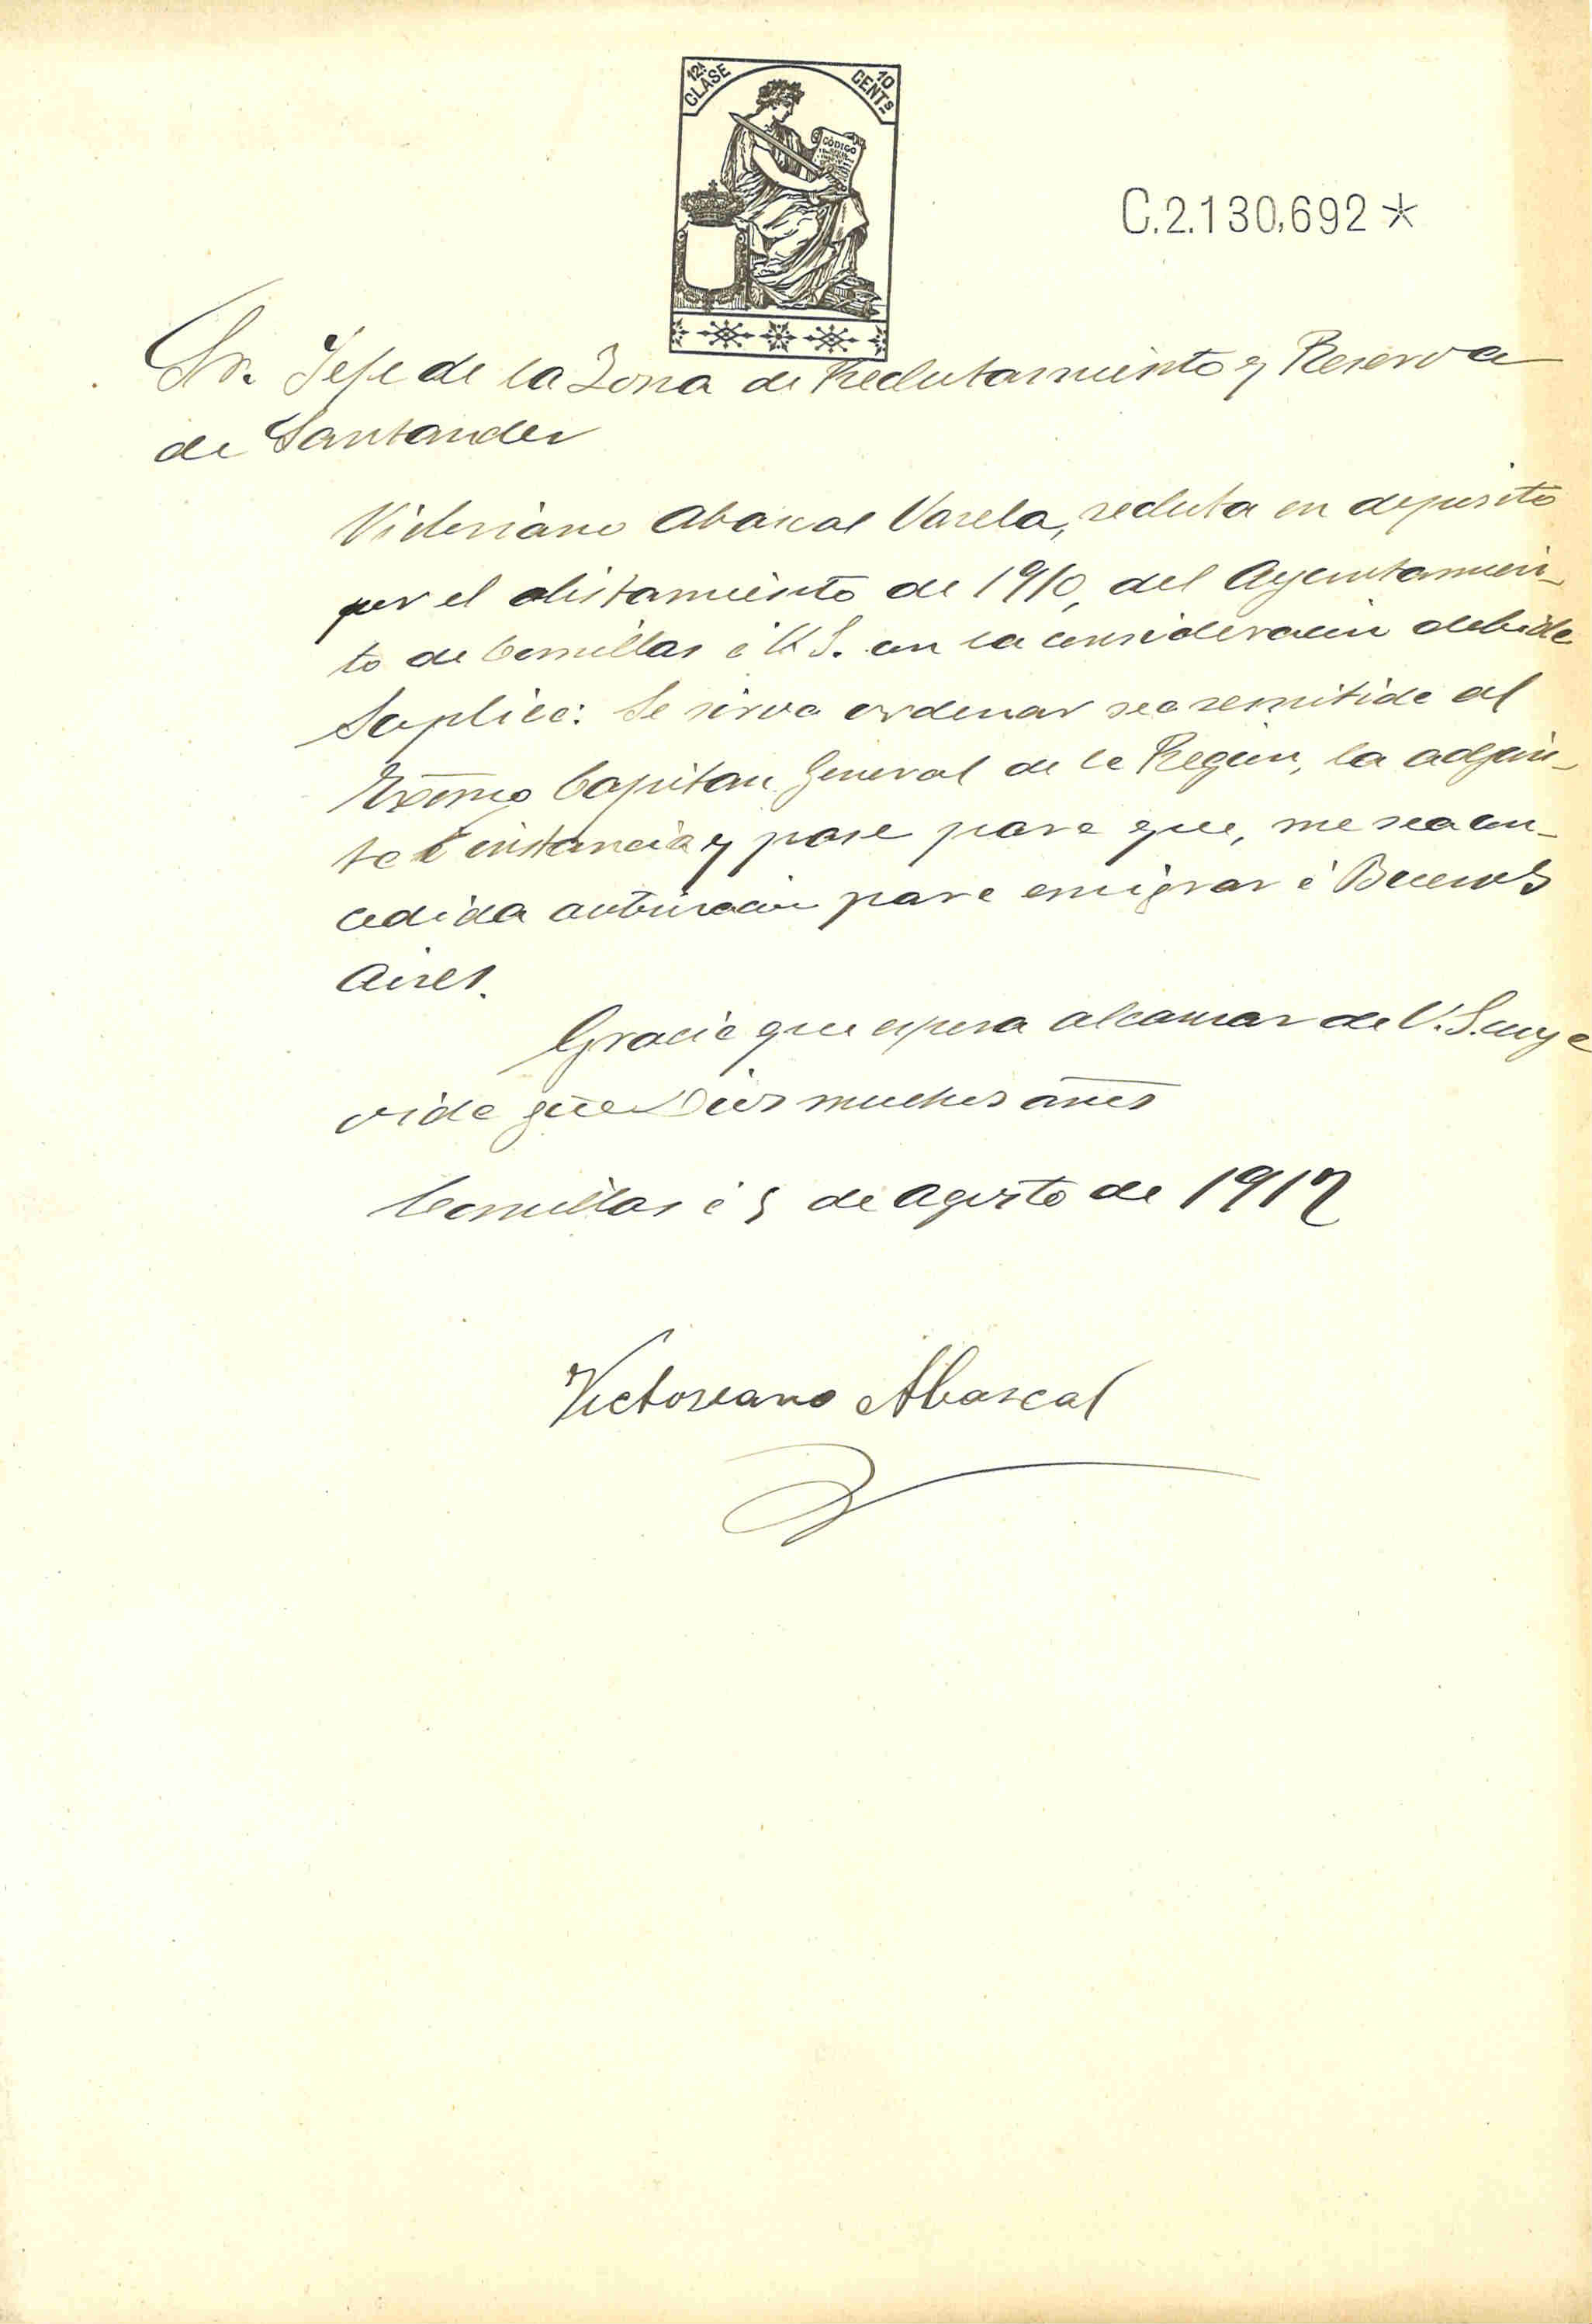 12ª CLASE 10 CENTs
CÓDIGO
C.2.130,692*
Sr. Jefe de la Zona de Reclutamiento y Reserva
de Santander
Victoriano Abascal Varela, recluta en deposito
por el alistamiento de 1910, del Ayuntamien-
to de Comillas á V.S. con la consideracion debida
Suplica: Se sirva ordenar sea remitida al
Excmo Capitan General de la Region, la adjun-
ta instancia y pase para que, me sea con-
cedida autorizacion para emigrar á Buenos
Aires.
Gracia que espera alcanzar de V.S. cuya
vida gûe Dios muchos años
Comillas á 5 de Agosto de 1912
Victoreano Abascal